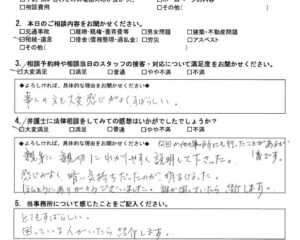 2. 本日のご相談内容をお聞かせください。
□交通事故 □離婚・親権・養育費等 □男女問題 □建築・不動産問題
□相続・遺言 □借金(債務整理・過払金) □労災 □アスベスト
□その他( )
3. 相談予約時や相談当日のスタッフの接客・対応について満足度をお聞かせください。
□大変満足 □満足 □普通 □やや不満 □不満
◆よろしければ、具体的な理由をお聞かせください。
事ムの方も大変感じがよくすばらしい。
4. 弁護士に法律相談をしてみての感想はいかがでしたでしょうか?
□大変満足 □満足 □普通 □やや不満 □不満
◆よろしければ、具体的な理由をお聞かせください。
親身に親切にわかりやすく説明して下さった。
感じがよく暗い気持ちだったのが明るくなった。
ほんとうにありがとうございました。誰か困っていたら紹介します。
5. 当事務所について感じたことをご記入ください。
とてもすばらしい。
困っている人がいたら紹介します。